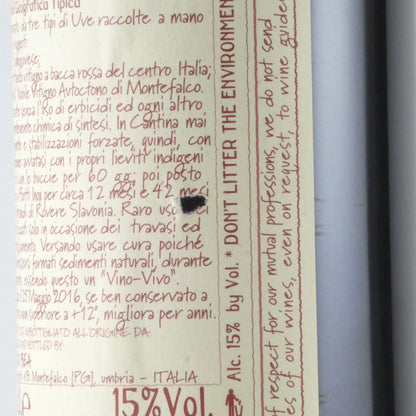 Geografica Tipica
da tre tipi di Uve raccolte a mano
Sangiovese;
vitigno a bacca rossa del centro Italia;
Nobile Vitigno Autoctono di Montefalco.
senza l'uso di erbicidi ed ogni altro
chimica di sintesi. In Cantina mai
e stabilizzazioni forzate, quindi, con
avviatasi con i propri lieviti indigeni
le buccie per 60 gg; poi posto
per circa 12 mesi e 42 mesi
di Rovere Slavonia. Raro uso dei
solo in occasione dei travasi ed
Versando usare cura poiché
formati sedimenti naturali, durante
essendo questo un "Vino-Vivo".
25 Maggio 2016, se ben conservato a
non superiore a +12°, migliora per anni.
IMBOTTIGLIATO ALL'ORIGINE DA:
BOTTLED BY:
Montefalco [PG], umbria - ITALIA
15% Vol.
Alc. 15% by Vol. * DON'T LITTER THE ENVIRONMENT
of respect for our mutual professions, we do not send
of our wines, even on request, to wine guides